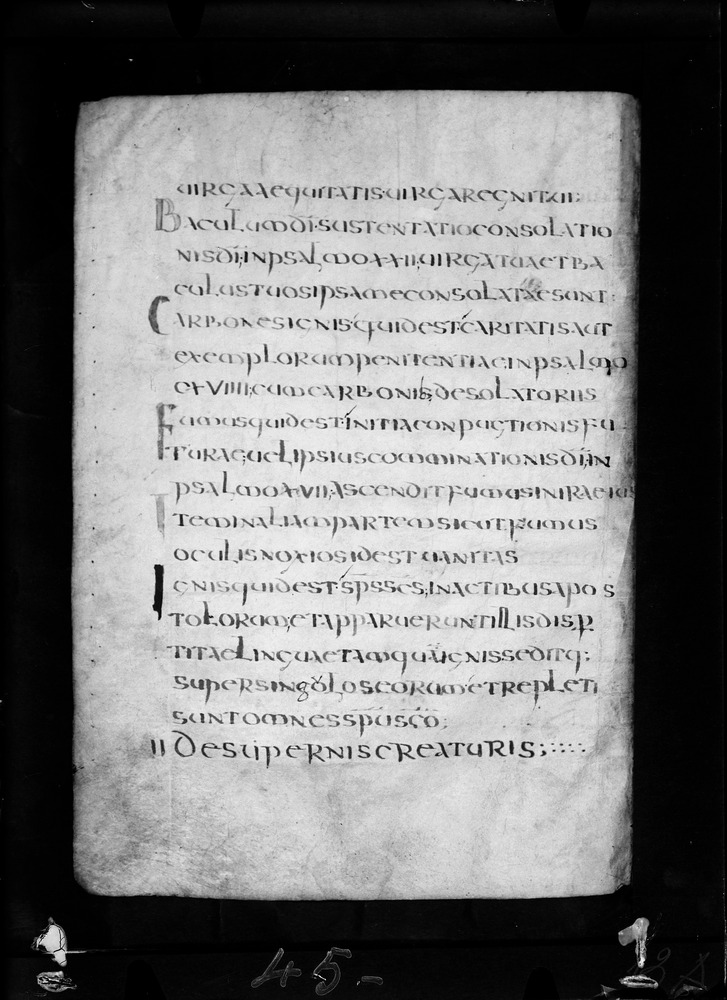 uirga aequitatis uirga regni tui;
Baculum di sustentatio consolatio
nis di; in psalmo xxii; uirga tua et ba
culus tuos ipsa me consolata esunt:
Carbones ignis quid est caritatis aut
exemplorum penitentiae; in psalmo
cxviiii; cum carbonib; desolatoriis
Fumus quid est initia conpuctionis fu
turae; uel ipsius comminationis di; in
psalmo xvii; ascendit fumus in ira eius
Item in aliam partem sicut fumus
oculis noxios id est uanitas
Ignis quid est sps scs; in actibus apos
tolorum; et apparuerunt illis disper
titae linguae tamquā ignis seditq;
super singolos eorum et repleti
sunt omnes spu sco;
II De supernis creaturis;
45.-